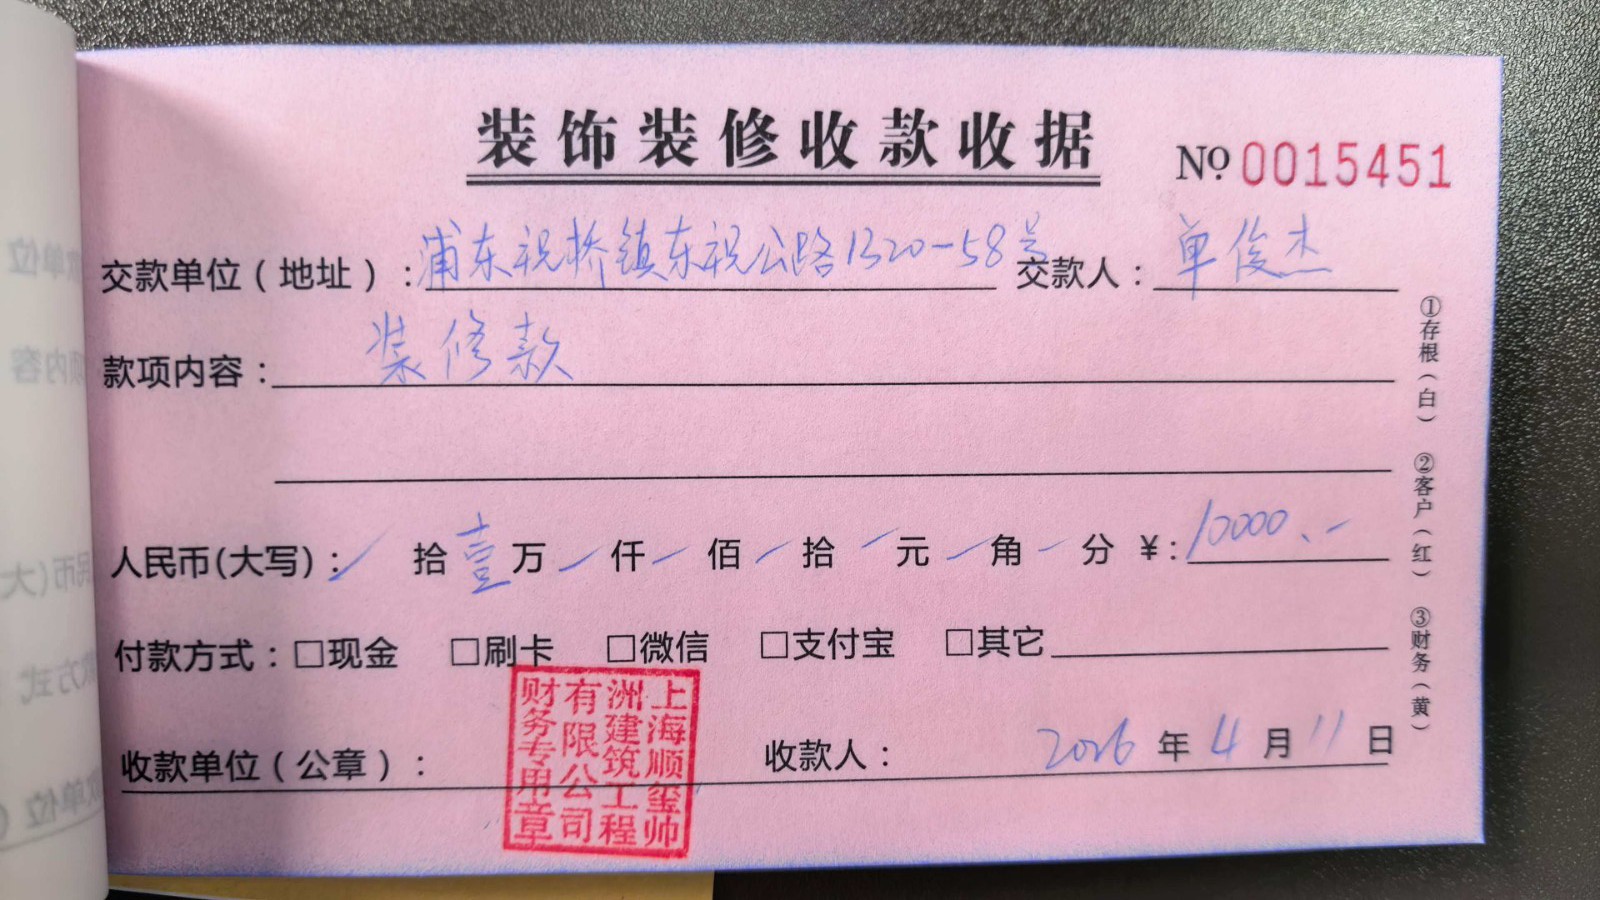 装饰装修收款收据
№ 0015451
交款单位(地址):浦东祝桥镇东祝公路1320-58号 交款人:单俊杰
款项内容:装修款
人民币(大写):/ 拾 壹 万 / 仟 / 佰 / 拾 / 元 / 角 / 分 ¥:10000.-
付款方式:□现金 □刷卡 □微信 □支付宝 □其它
收款单位(公章): 收款人: 2026年4月11日
上海顺玺帅
洲建筑工程
有限公司
财务专用章
①存根(白) ②客户(红) ③财务(黄)